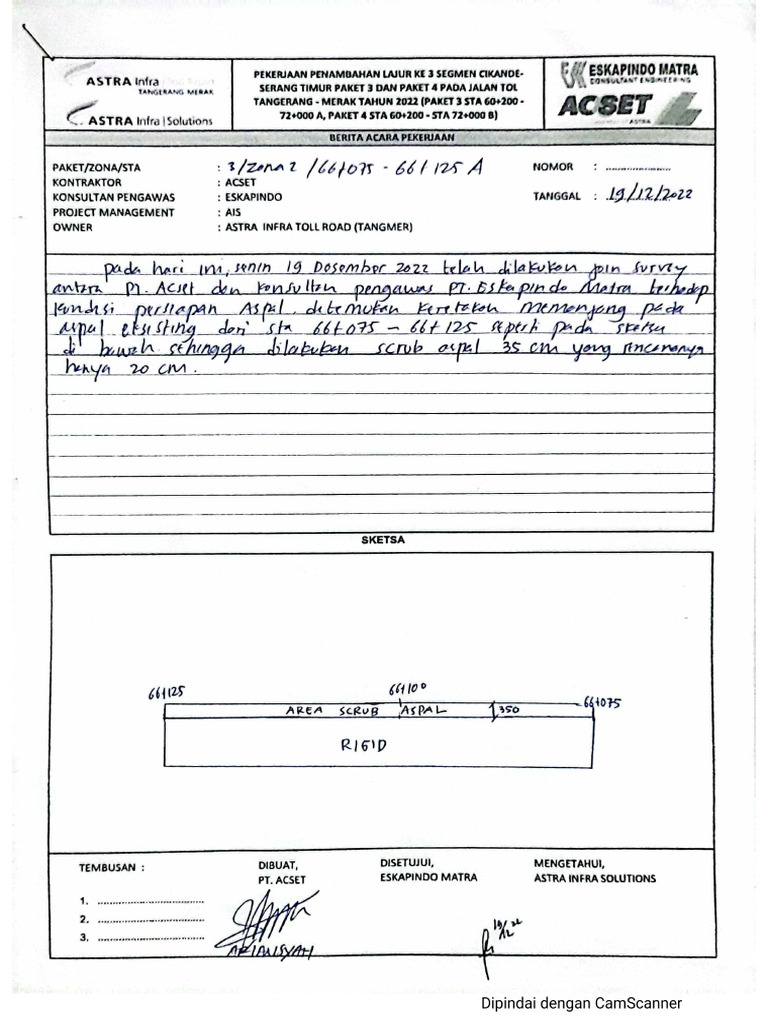 ASTRA Infra
TANGERANG MERAK
ASTRA Infra | Solutions
PEKERJAAN PENAMBAHAN LAJUR KE 3 SEGMEN CIKANDE-
SERANG TIMUR PAKET 3 DAN PAKET 4 PADA JALAN TOL
TANGERANG - MERAK TAHUN 2022 (PAKET 3 STA 60+200 -
72+000 A, PAKET 4 STA 60+200 - STA 72+000 B)
ESKAPINDO MATRA
CONSULTANT ENGINEERING
ACSET
ASTRA
BERITA ACARA PEKERJAAN
PAKET/ZONA/STA : 3/Zona 2 /66+075 - 66+125 A
KONTRAKTOR : ACSET
KONSULTAN PENGAWAS : ESKAPINDO
PROJECT MANAGEMENT : AIS
OWNER : ASTRA INFRA TOLL ROAD (TANGMER)
NOMOR : ....................
TANGGAL : 19/12/2022
pada hari ini, senin 19 Desember 2022 telah dilakukan join survey
antara PT. Acset dan konsultan pengawas PT. Eskapindo Matra terhadap
kondisi persiapan Aspal, ditemukan keretakan memanjang pada
aspal eksisting dari sta 66+075 - 66+125 seperti pada sketsa
di bawah sehingga dilakukan scrub aspal 35 cm yang rencananya
hanya 20 cm.
SKETSA
66+125
66+100
66+075
AREA SCRUB ASPAL 350
RIGID
TEMBUSAN :
1. ..............................
2. ..............................
3. ..............................
DIBUAT,
PT. ACSET
ARIANSYAH
DISETUJUI,
ESKAPINDO MATRA
19/12 22
MENGETAHUI,
ASTRA INFRA SOLUTIONS
Dipindai dengan CamScanner